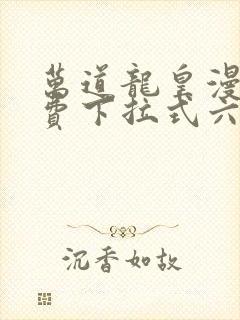 萬道龍皇漫
費下拉式六
沉香如故